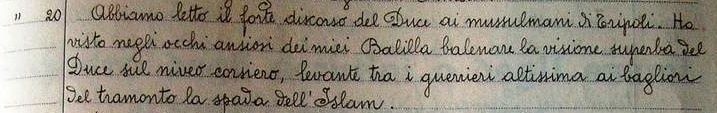 " 20 Abbiamo letto il forte discorso del Duce ai mussulmani di Tripoli. Ho
visto negli occhi ansiosi dei miei Balilla balenare la visione superba del
Duce sul niveo corsiero, levante tra i guerrieri altissima ai bagliori
del tramonto la spada dell'Islam.